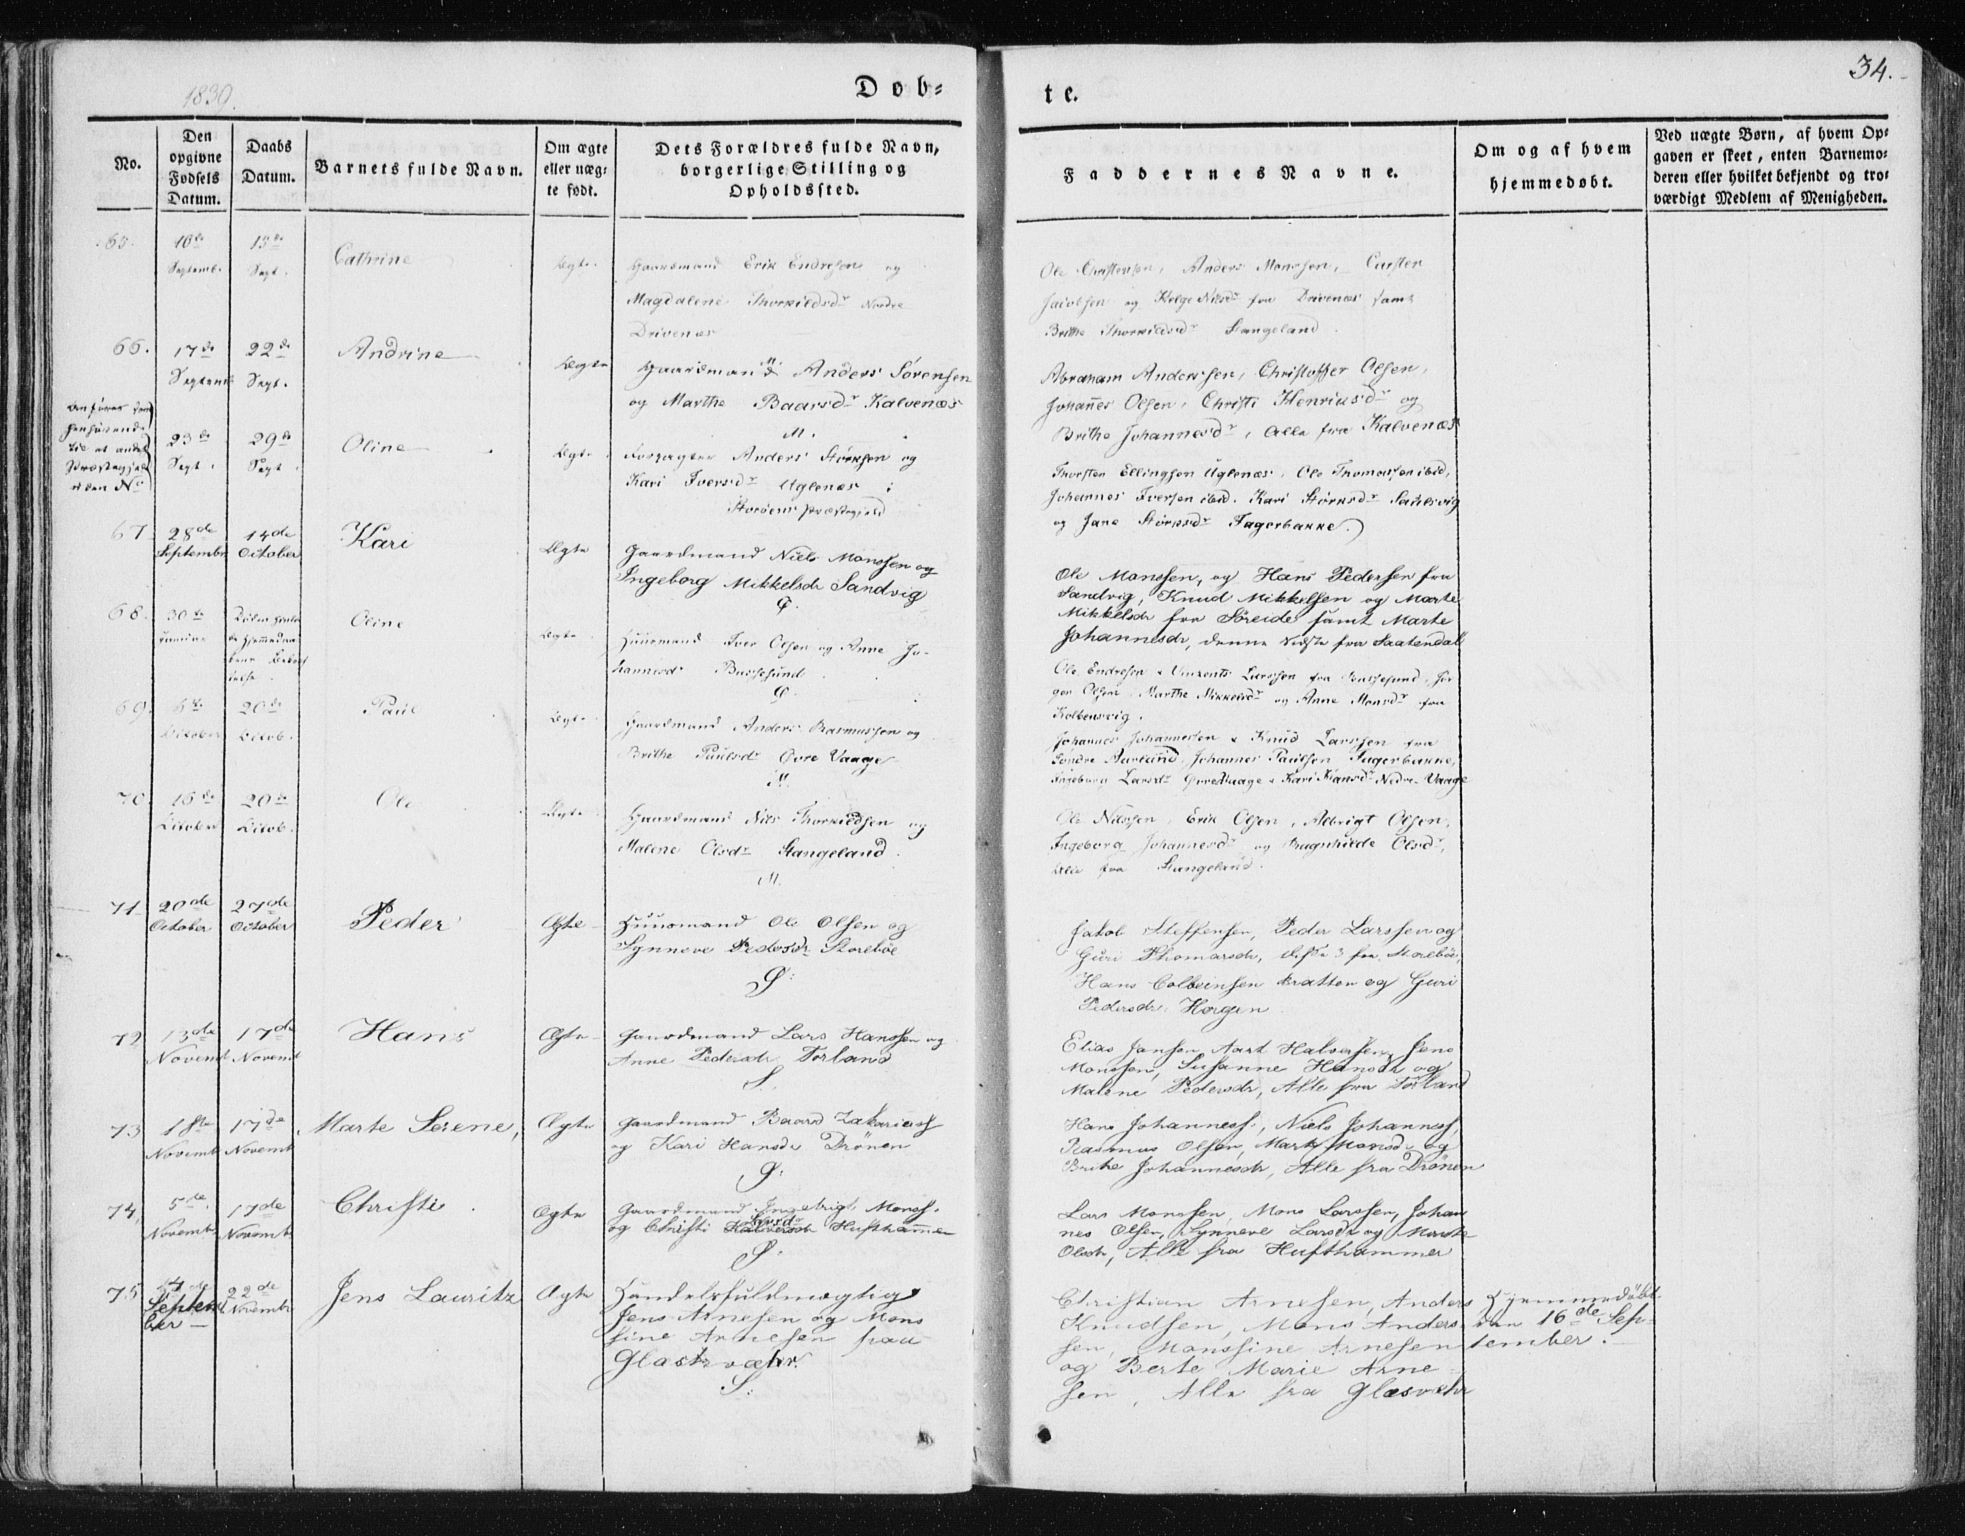 34.
Døb-
te.
No.
Den
opgivne
Fødsels
Datum.
Daabs
Datum.
Barnets fulde Navn.
Om ægte
eller uæg-
te født.
Dets Forældres fulde Navn,
borgerlige Stilling og
Opholdssted.
Faddernes Navne.
Om og af hvem
hjemmedøbt.
Ved uægte Børn, af hvem Op-
gaven er skeet, enten Barnemo-
deren eller hvilket bekjendt og tro-
værdigt Medlem af Menigheden.
65.
10de
Septemb.
15de
Sept.
Cathrine
Ægte.
Gaardmand Erik Endresen og
Magdalene Thorkildsdr Nordre
Drivenæs
Ole Christensen, Anders Monssen, Carsten
Jacobsen og Helge Nilsdr fra Drivenæs samt
Brithe Thorkildsdr Stangeland.
66.
17de
Septemb
22de
Sept.
Andrine
Ægte
Gaardmand Anders Sørensen
og Marthe Baarsdr Kalvenæs
M.
Abraham Anderssen, Christoffer Olsen,
Johannes Olsen, Christi Henriksdr og
Brithe Johannesdr, Alle fra Kalvenæs
23de
Sept.
29de
Sept.
Oline
Ægte
Anders Størksen og
Kari Iversdr Uglenæs i
Storøens Præstegjeld
Thorsten Ellingsen Uglenæs, Ole Thomassen ibid,
Johannes Iversen ibid. Kari Størksdr Saulsvig
og Jane Størksdr Fagerbakke.)
67
28de
Septembr
14de
October
Kari
Ægte
Gaardmand Niels Monssen og
Ingeborg Mikkelsdr Sandvig
Ø.
Ole Monssen, og Hans Pedersen fra
Sandvig, Knud Mikkelsen og Marte
Mikkelsdr fra Søreide samt Marte
Johannesdr, denne sidste fra Saatendal
68.
30te
Oline
Ægte.
Huusmand Iver Olsen og Anne Jo-
hannesdr Bussesund
Ø.
Ole Endresen & Vincents Larssen fra Bussesund, Jør
gen Olsen, Marthe Mikkelsdr og Anne Monsdr fra
Kolbensvig.
69.
October
20de
Octob.
Paul
Ægte
Gaardmand Anders Rasmussen og
Brithe Paulsdr Øvre Vaage
M.
Johannes Johannessen & Knud Larssen fra
Søndre Aurland, Johannes Paulsen Fagerbakke,
Ingeborg Larsdr Øvre Vaage & Kari Hansdr Nedre Vaage
70.
16de
October
20de
Octob.
Ole
Ægte
Gaardmand Nils Thorkildsen og
Malene Olsdr Stangeland.
M.
Ole Nilssen, Erik Olsen, Albrigt Olsen,
Ingeborg Johannesdr og Ragnhilde Olsdr,
Alle fra Stangeland.
71
20de
October
27de
October
Peder
Ægte
Huusmand Ole Olsen og
Synneve Pedersdr Storebøe
Ø:
Jakob Steffensen, Peder Larssen og
Guri Thomasdr, disse 3 fra Storebøe,
Hans Colbeinsen Bratten og Guri
Pedersdr. Horgen
72
13de
Novemb
17de
Novemb
Hans
Ægte
Gaardmand Lars Hanssen og
Anne Pedersdr Torland
S.
Elias Jansen, Aart Halvorsen, Jens
Monssen, Susanne Hansdr og
Malene Pedersdr, Alle fra Torland
73
18te
Novemb
17de
Novemb
Marte Serene,
Ægte
Gaardmand Baard Zakariess
og Kari Hansdr Drönen
Ø:
Hans Johanness., Niels Johanness,
Rasmus Olsen, Marte Monsdr og
Brithe Johannesdr, Alle fra Drönen
74,
5te.
Novembr
17de
Novemb
Christi
Ægte
Gaardmand Ingebrigt Monss.
og Christi Hufthammer
Ø:
Lars Monssen, Mons Larssen, Johan
nes Olsen, Synneve Larsdr og Marte
Olsdr, Alle fra Hufthammer
75
Septem
ber
22de
Novembr
Jens Lauritz
Ægte
Handelsfuldmægtig
Jens Arnesen og Mons
sine Arnesen paa
Glasvæhr.
S:
Christian Arnesen, Anders
Knudsen, Mons Anders
sen, Monssine Arnesen
og Berte Marie Arne
sen, Alle fra Glasvæhr
Hjemmedöbt
den 16de Sep-
tember.